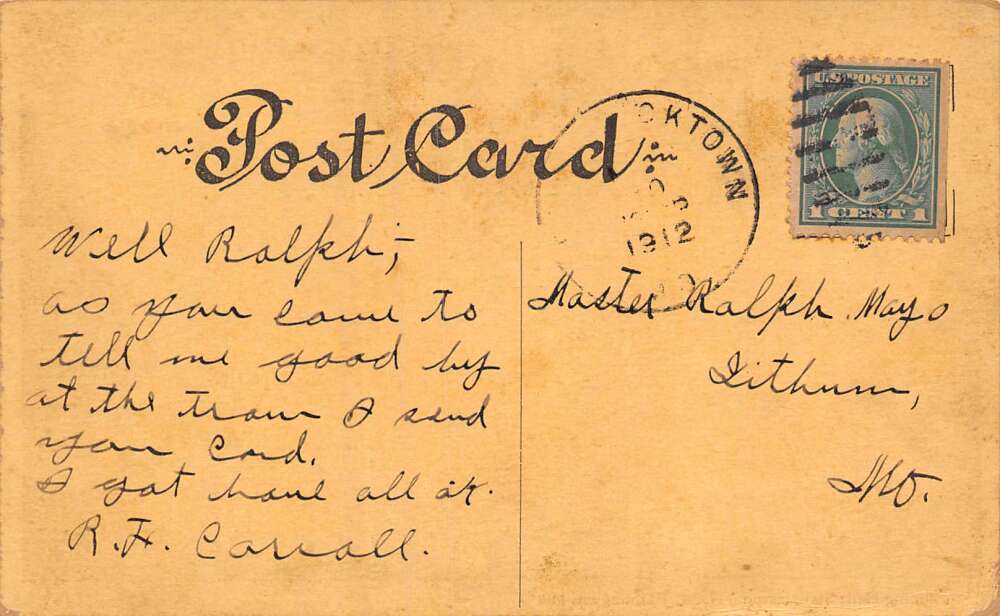 Post Card
OCKTOWN
1912
U.S. POSTAGE
1 CENT 1
Well Ralph,-
as you came to
tell me good by
at the train I send
you Card.
I got home all ok.
R.F. Carroll.
Master Ralph Mayo
Lithium,
Mo.